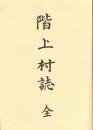 階上村誌 全